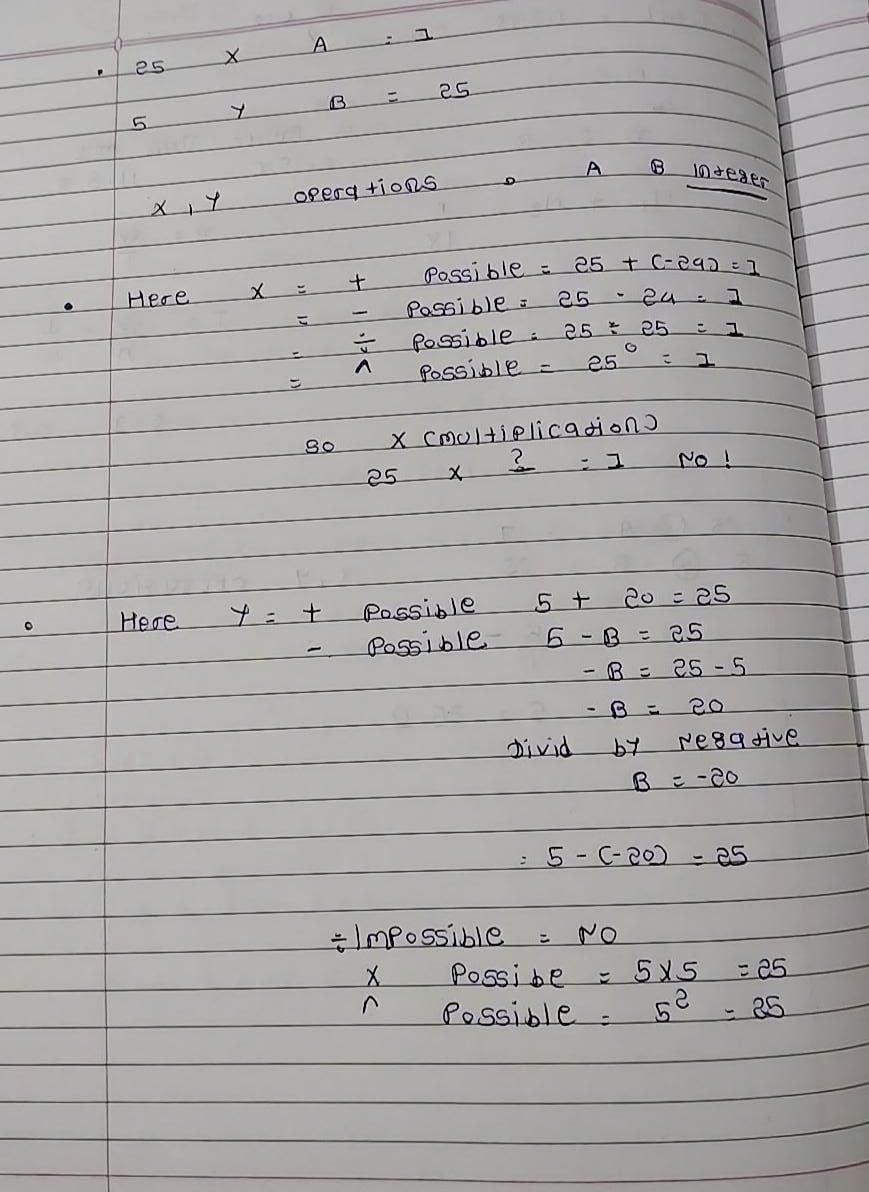 25 X A = 1
5 Y B = 25
X, Y operations A B Integer
Here X = + Possible = 25 + (-24) = 1
= - Possible = 25 - 24 = 1
= ÷ Possible = 25 ÷ 25 = 1
= ^ Possible = 25⁰ = 1
so X (multiplication)
25 x ? = 1 No!
Here Y = + Possible 5 + 20 = 25
- Possible 5 - B = 25
- B = 25 - 5
- B = 20
Divid by negative
B = -20
= 5 - (-20) = 25
÷ Impossible = NO
X Possibe = 5x5 = 25
^ Possible = 5² = 25